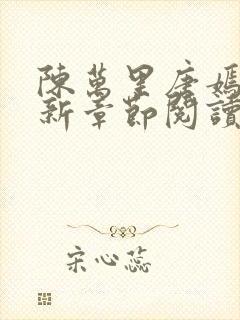 陳萬里唐嫣
新章節閱讀
宋心蕊